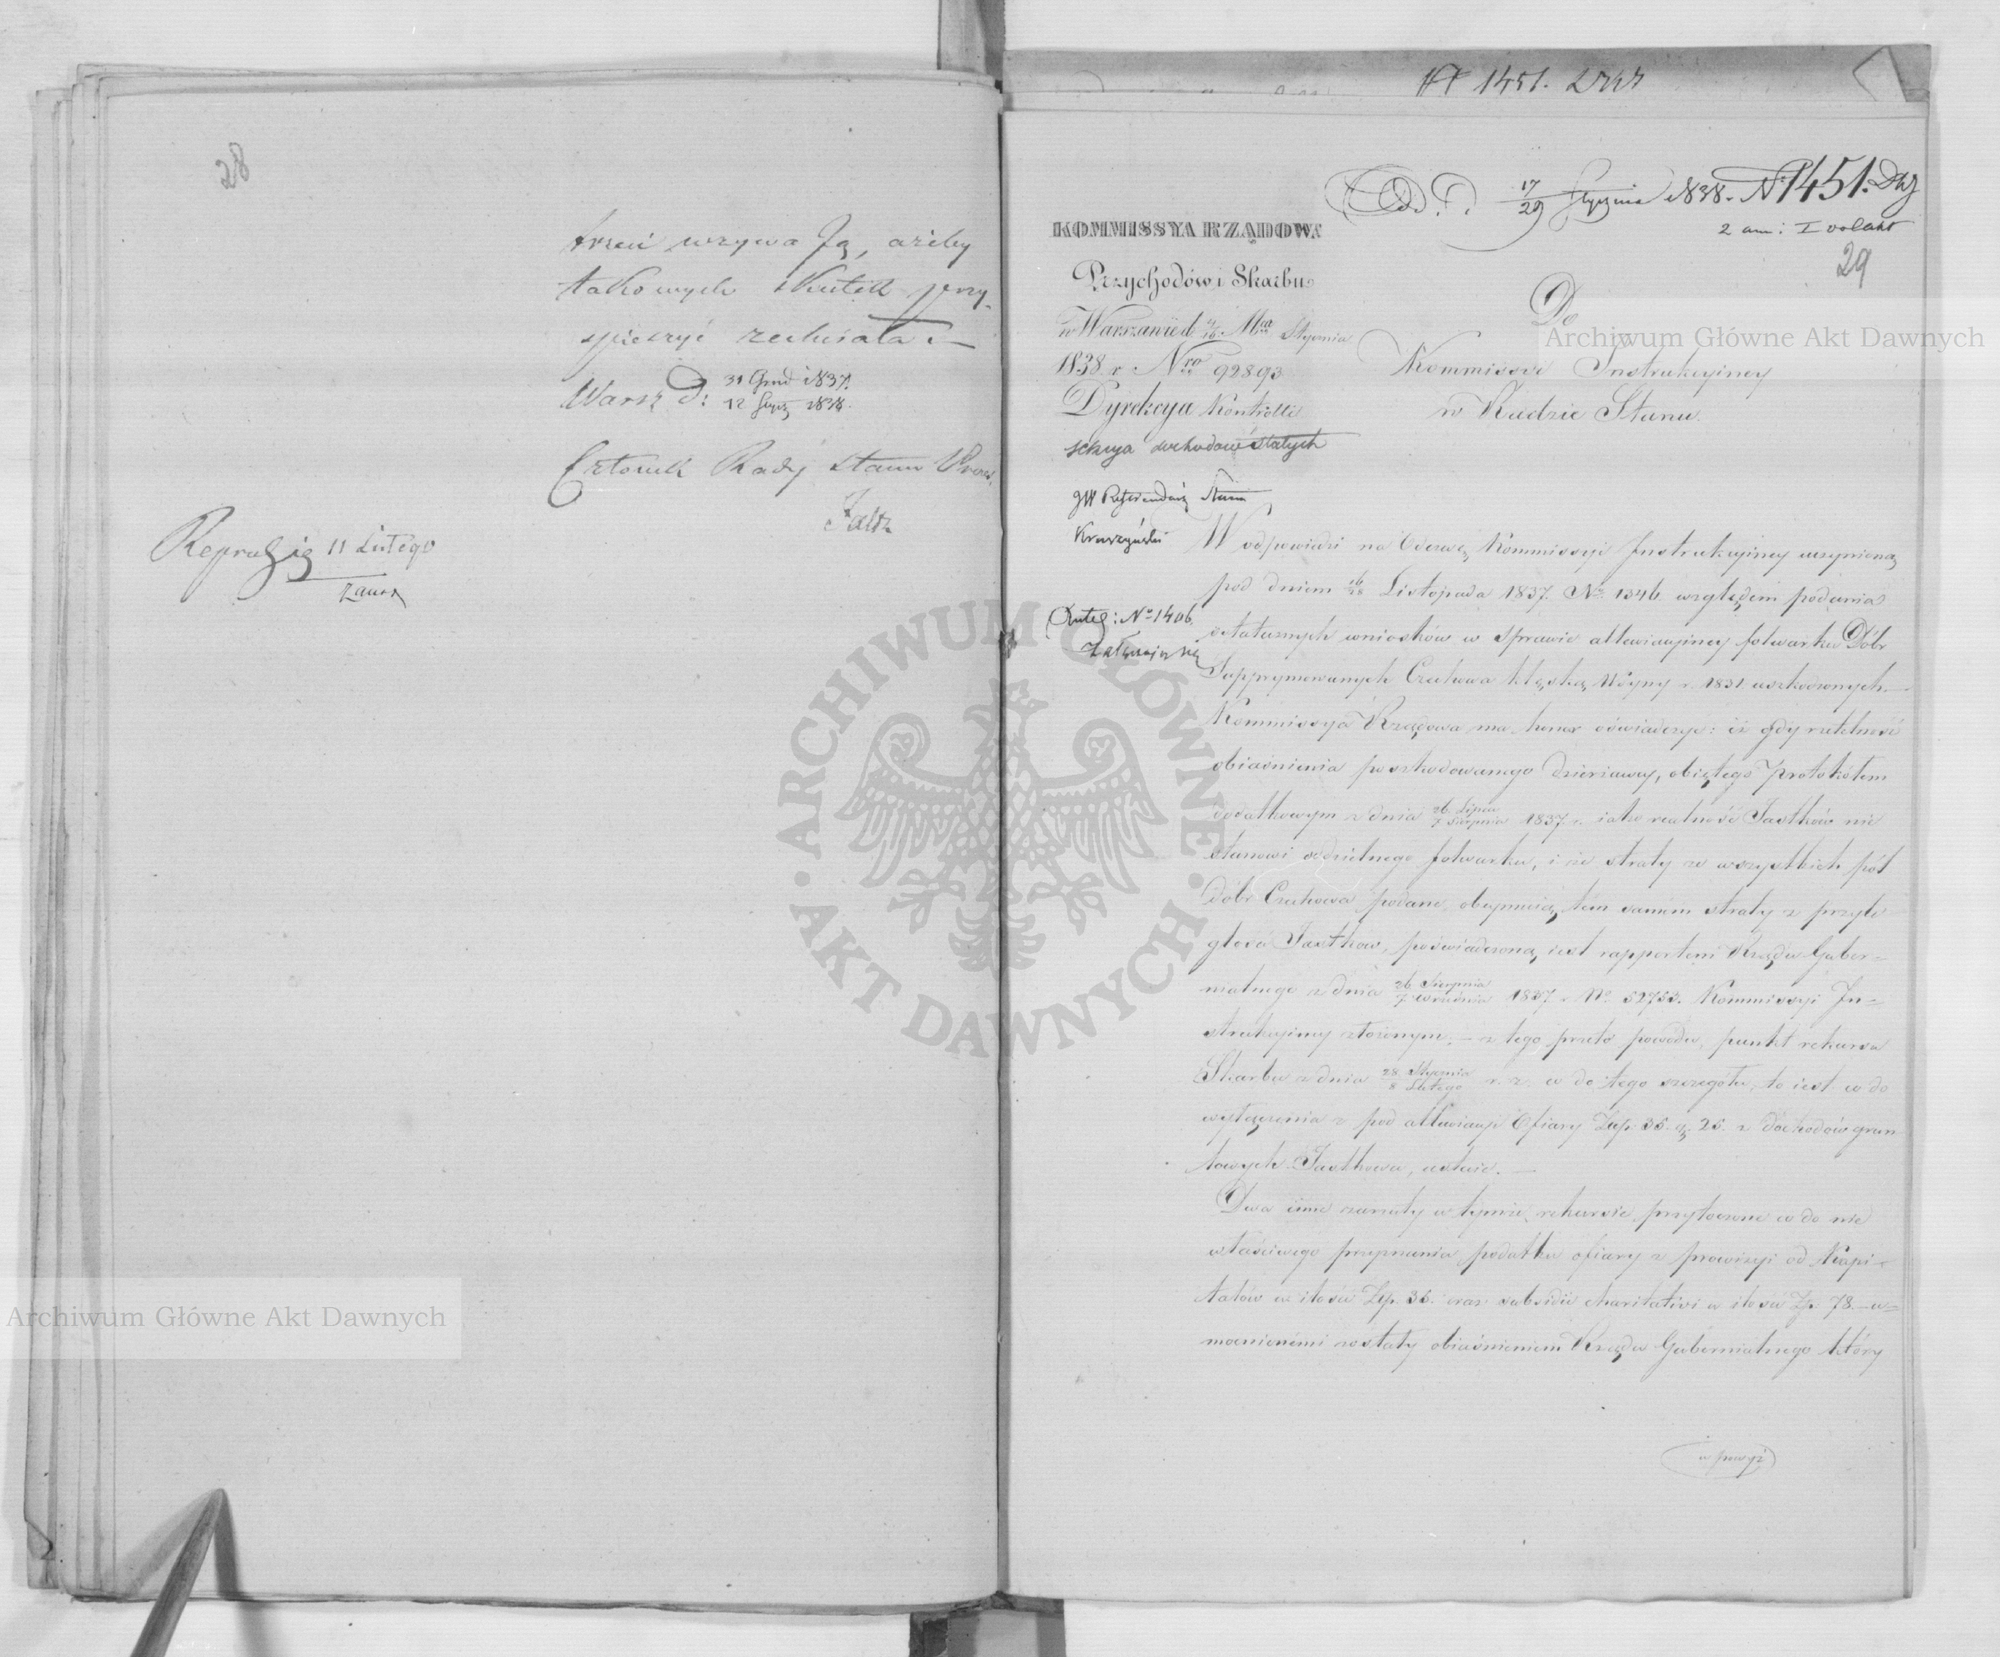 28
treści wzywa Ją, ażeby
takowych skutek przy-
spieszyć zechciała.
Warsz D: 31 Grud 1837.
12 Stycz 1838.
Członek Rady Stanu Prez.
Reprod ig 11 Lutego
1451.
Od. D. 17/29 Stycznia 1838. N 1451.
2 ann: I volant
29
KOMMISSYA RZĄDOWA
Przychodów i Skarbu
w Warszawie d 4/16 Mca Stycznia
1838 r Nro 92893
Dyrekcya Kontrolli
sekcya dochodów stałych
JW Referendarz Stanu
Kruszyński
Do
Kommissyi Instrukcyiney
w Radzie Stanu.
W odpowiedzi na Odezwę Kommissyi Instrukcyiney uczynioną
pod dniem 16/28 Listopada 1837. No 1346. względem podania
ostatecznych wniosków w sprawie allewiacyiney folwarku Dóbr
Supprymowanych Czuchowa klęską Woyny r. 1831 uszkodzonych.
Kommissya Rządowa ma honor oświadczyć: iż gdy rzetelność
obiaśnienia poszkodowanego dzierżawcy, obiętego protokółem
dodatkowym z dnia 26 Lipca/7 Sierpnia 1837 r. iako realność Jastków nie
stanowi oddzielnego folwarku, i że straty ze wszystkich pól
Dóbr Czuchowa podane, obeymuią tém samém straty z przyle-
głości Jastkow, poświadczoną iest rapportem Rządu Guber-
nialnego z dnia 26 Sierpnia/7 Września 1837 r. No 52753. Kommissyi In-
strukcyiney złożonym. – z tego przeto powodu, punkt rekursu
Skarbu z dnia 28 Stycznia/8 Lutego r. z. co do tego szczegółu, to iest co do
wyłączenia z pod allewiacyi Ofiary Złp. 35. g. 25. z dochodów grun-
towych Jastkowa, ustaie. –
Dwa inne zarzuty w tymże rekursie przytoczone co do nie
właściwego przyznania podatku ofiary z prowizyi od Kapi-
tałów w ilości Złp. 36. oraz subsidii charitativi w ilości Zp. 78. – u-
mocnionémi zostały obiaśnieniem Rządu Gubernialnego który
Anteg: No 1406.
Archiwum Główne Akt Dawnych
Archiwum Główne Akt Dawnych
ARCHIWUM GŁÓWNE · AKT DAWNYCH ·